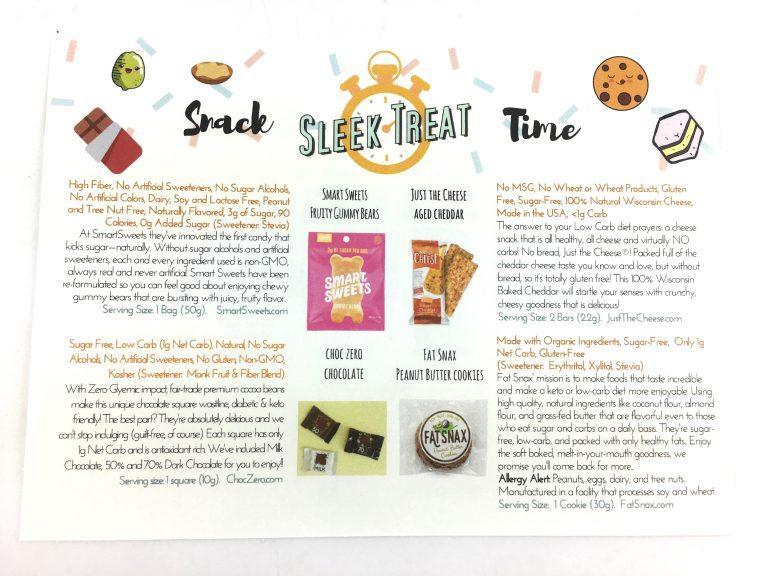 Snack
SLEEK TREAT
Time
High Fiber, No Artificial Sweeteners, No Sugar Alcohols,
No Artificial Colors, Dairy, Soy and Lactose Free, Peanut
and Tree Nut Free, Naturally Flavored, 3g of Sugar, 90
Calories, 0g Added Sugar (Sweetener: Stevia)
At SmartSweets they've innovated the first candy that
kicks sugar—naturally. Without sugar alcohols and artificial
sweeteners, each and every ingredient used is non-GMO,
always real and never artificial. Smart Sweets have been
re-formulated so you can feel good about enjoying chewy
gummy bears that are bursting with juicy, fruity flavor.
Serving Size: 1 Bag (50g). SmartSweets.com
SMART SWEETS
FRUITY GUMMY BEARS
SMART
SWEETS
JUST THE CHEESE
AGED CHEDDAR
CHEESE
No MSG, No Wheat or Wheat Products, Gluten
Free, Sugar-Free, 100% Natural Wisconsin Cheese,
Made in the USA, <1g Carb
The answer to your Low Carb diet prayers: a cheese
snack that is all healthy, all cheese and virtually NO
carbs! No bread, Just the Cheese®! Packed full of the
cheddar cheese taste you know and love, but without
bread, so it's totally gluten free! This 100% Wisconsin
Baked Cheddar will startle your senses with crunchy,
cheesy goodness that is delicious!
Serving Size: 2 Bars (22g). JustTheCheese.com
Sugar Free, Low Carb (1g Net Carb), Natural, No Sugar
Alcohols, No Artificial Sweeteners, No Gluten, Non-GMO,
Kosher (Sweetener: Monk Fruit & Fiber Blend)
With Zero Glyemic impact, fair-trade premium cocoa beans
make this unique chocolate square wastline, diabetic & keto
friendly! The best part? They're absolutely delicious and we
can't stop indulging (guilt-free, of course). Each square has only
1g Net Carb and is antioxidant rich. We've included Milk
Chocolate, 50% and 70% Dark Chocolate for you to enjoy!!
Serving size: 1 square (10g). ChocZero.com
CHOC ZERO
CHOCOLATE
70
MILK
FAT SNAX
PEANUT BUTTER COOKIES
FAT SNAX
Made with Organic Ingredients, Sugar-Free, Only 1g
Net Carb, Gluten-Free
(Sweetener: Erythritol, Xylitol, Stevia)
Fat Snax' mission is to make foods that taste incredible
and make a keto or low-carb diet more enjoyable. Using
high quality, natural ingredients like coconut flour, almond
flour, and grass-fed butter that are flavorful even to those
who eat sugar and carbs on a daily basis. They're sugar-
free, low-carb, and packed with only healthy fats. Enjoy
the soft baked, melt-in-your-mouth goodness, we
promise you'll come back for more..
Allergy Alert: Peanuts, eggs, dairy, and tree nuts.
Manufactured in a facility that processes soy and wheat.
Serving Size: 1 Cookie (30g). FatSnax.com